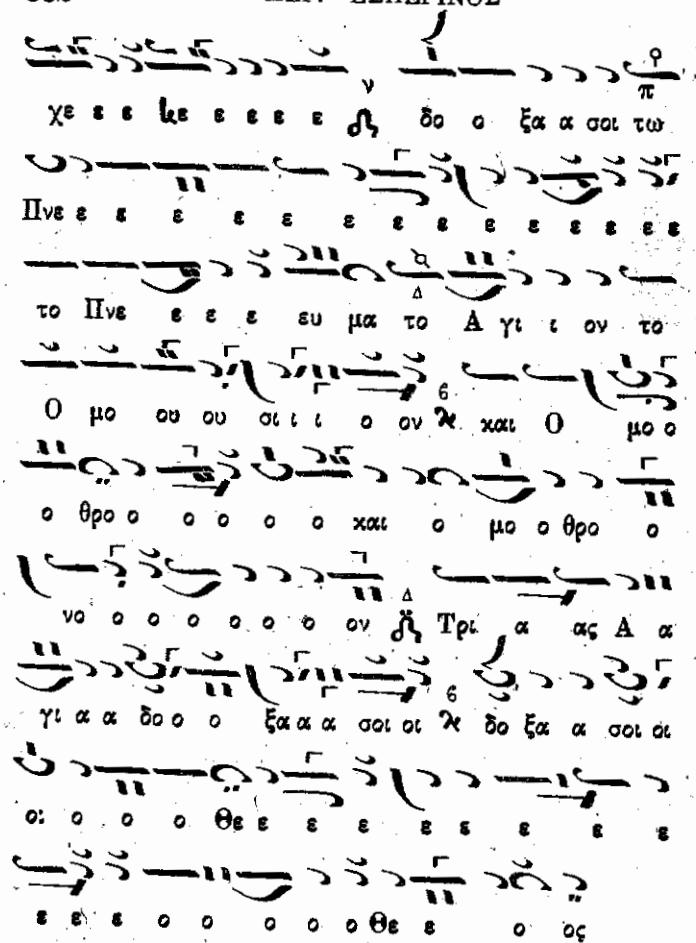 ΕΣΠΕΡΙΝΟΣ
χε ε ε κε ε ε ε ε ν δο ο ξα α σοι τω π
Πνε ε ε ε ε ε ε ε ε ε ε ε ε ε ε
το Πνε ε ε ε ευ μα το Δ Α γι ι ον το
Ο μο ου ου σι ι ι ο ον και Ο μο ο
ο θρο ο ο ο ο ο ο και ο μο ο θρο ο
νο ο ο ο ο ο ο ον Δ Τρι α ας Α α
γι α α δο ο ο ξα α α σοι οι δο ξα α σοι οι
οι ο ο ο Θε ε ε ε ε ε ε ε ε
ε ε ε ο ο ο ο ο Θε ε ο ος